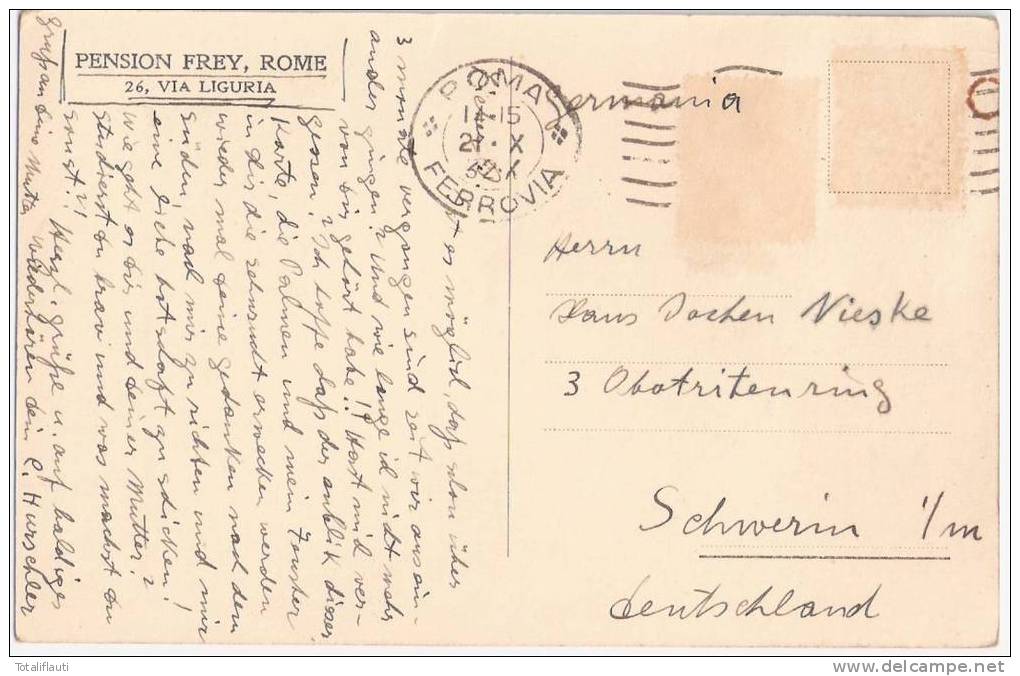 PENSION FREY, ROME
26, VIA LIGURIA
ROMA
FERROVIA
11-15
21·X
Germania
Herrn
Hans Jochen Nieske
3 Obotritenring
Schwerin i/m
Deutschland
ist es möglich, daß schon über
3 monate vergangen sind seit wir ausein-
ander gingen? Und wie lange ich nicht mehr
von dir gehört habe!! Hast mich ver-
gessen? Ich hoffe daß der anblik dieser
Karte, die Palmen und mein Fenster
in dir die sehnsucht erwecken werden
wieder mal deine gedanken nach dem
süden, nach mir zu richten und mir
eine liebe botschaft zu schicken!
wie geht es dir und deiner Mutter?
studierst du brav und was machst du
sonst?! Herzl. grüße u. auf baldiges
wiederhören dein C. Hurschler
gruß an deine Mutter
Totaliflauti
www.delcampe.net